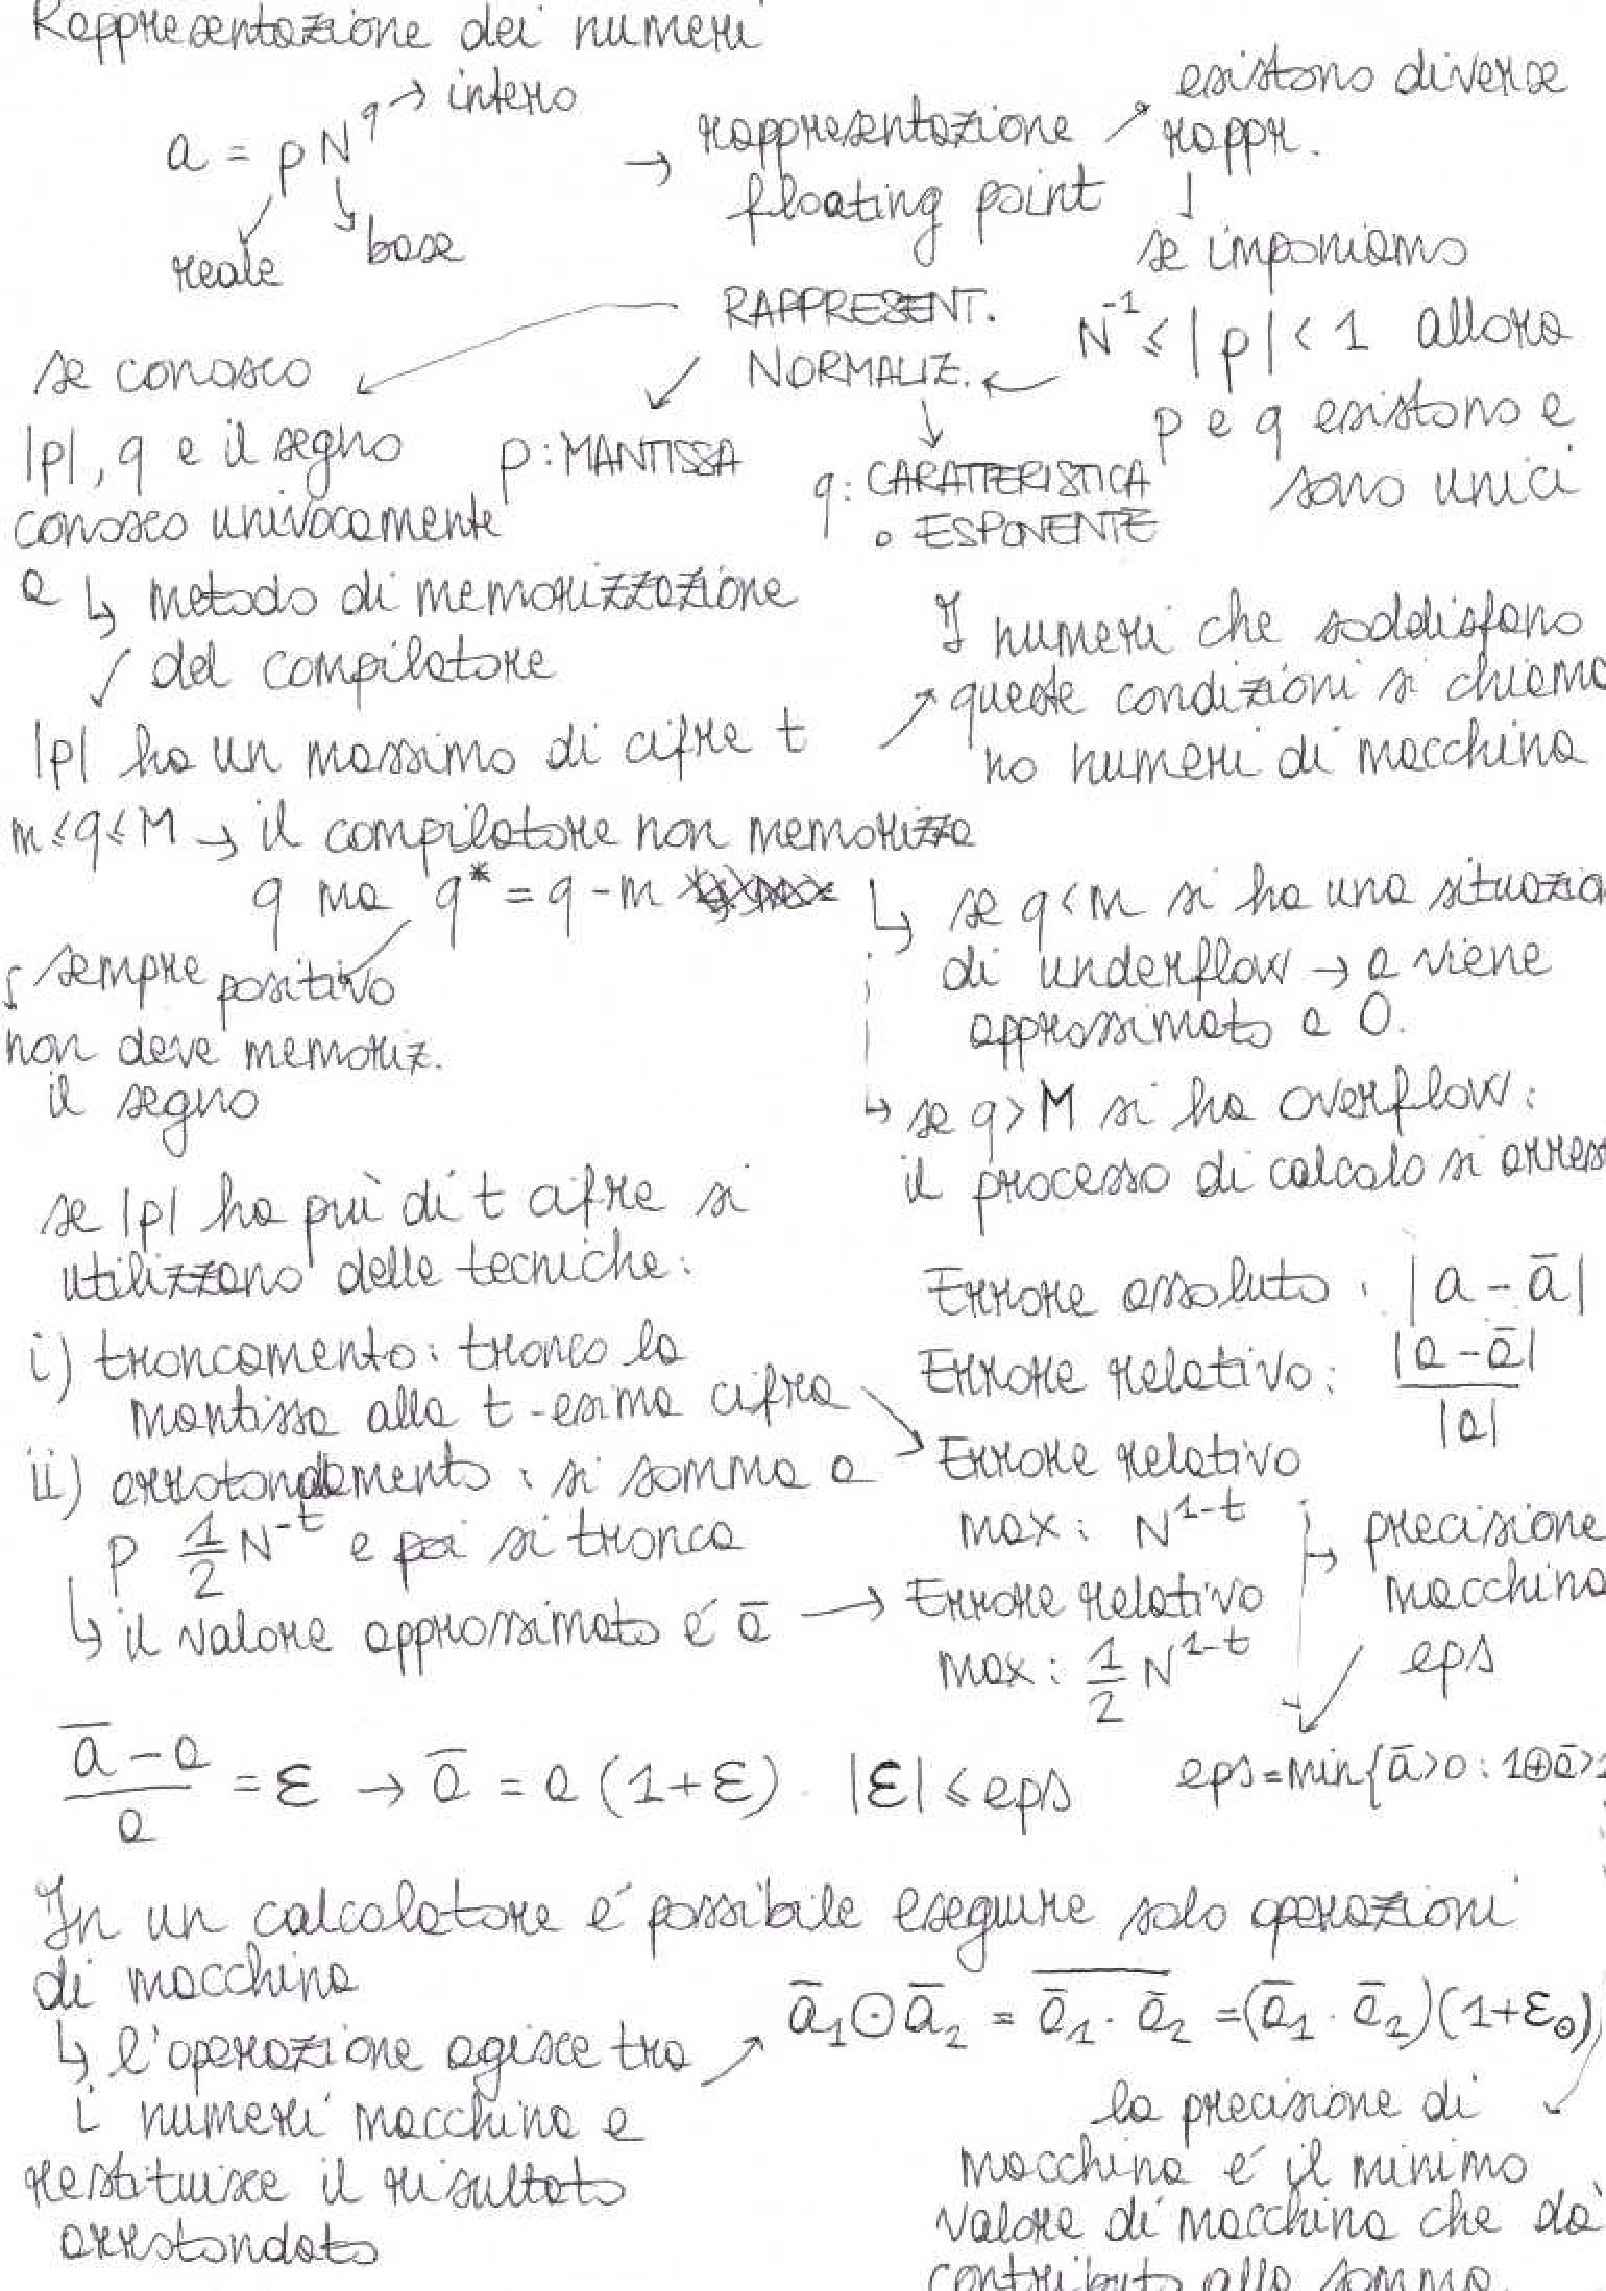 Rappresentazione dei numeri
a = p N^q → intero
reale
base
→ rappresentazione
floating point
esistono diverse
rappr.
se imponiamo
N^-1 ≤ |p| < 1 allora
p e q esistono e
sono unici
RAPPRESENT.
NORMALIZ.
p: MANTISSA
q: CARATTERISTICA
o ESPONENTE
se conosco
|p|, q e il segno
conosco univocamente
a ↳ metodo di memorizzazione
del compilatore
|p| ha un massimo di cifre t
I numeri che soddisfano
queste condizioni si chiama
no numeri di macchina
m ≤ q ≤ M → il compilatore non memorizza
q ma q* = q - m
sempre positivo
non deve memoriz.
il segno
↳ se q < m si ha una situazio
di underflow → a viene
approssimato a 0.
↳ se q > M si ha overflow:
il processo di calcolo si arres
se |p| ha più di t cifre si
utilizzano delle tecniche:
i) troncamento: tronco la
mantissa alla t-esima cifra
ii) arrotondamento: si somma a
p 1/2 N^-t e poi si tronca
↳ il valore approssimato é ā
Errore assoluto: |a - ā|
Errore relativo: |a - ā| / |a|
Errore relativo
max: N^1-t
→ Errore relativo
max: 1/2 N^1-t
↳ precisione
macchina
eps
(ā - a) / a = ε → ā = a (1+ε) |ε| ≤ eps
eps = min{ā>0 : 1⊕ā>1
In un calcolatore é possibile eseguire solo operazioni
di macchina
↳ l'operazione agisce tra
i numeri macchina e
restituisce il risultato
arrotondato
ā₁ ⊙ ā₂ = \overline{ā₁ · ā₂} = (ā₁ · ā₂)(1+ε⊙)
la precisione di
macchina é il minimo
valore di macchina che dà
contributo alla somma.